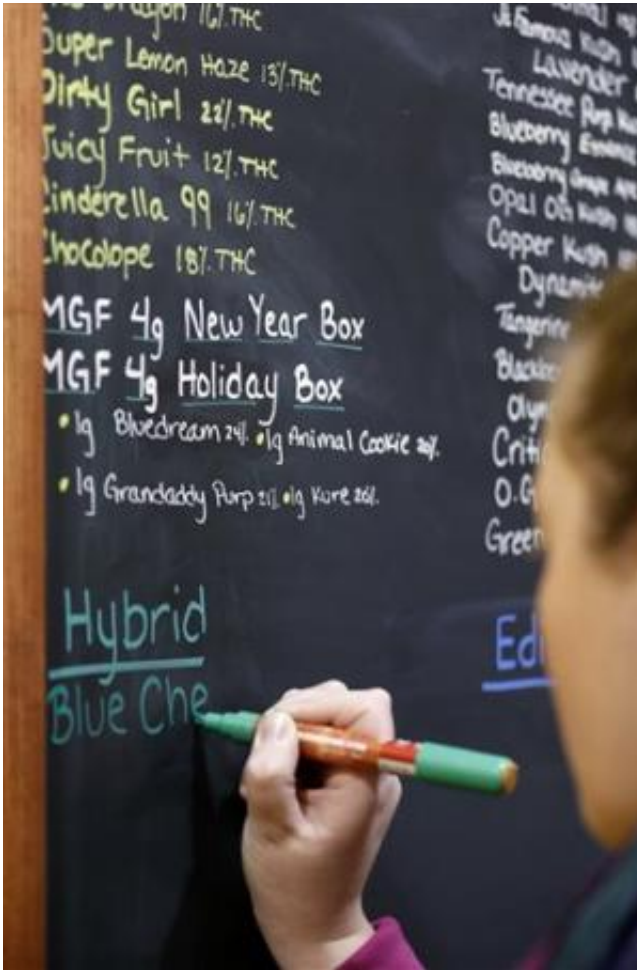 Dragon 16%.THC
Super Lemon Haze 13%.THC
Dirty Girl 22%.THC
Juicy Fruit 12%.THC
Cinderella 99 16%.THC
Chocolope 18%.THC
MGF 4g New Year Box
MGF 4g Holiday Box
•1g Bluedream 24%. •1g Animal Cookie
•1g Grandaddy Purp 21%. •1g Kure 26%.
Hybrid
Blue Che
Kush
Lavender
Tennessee Purp
Blueberry
Blueberry Grape
Opal OG Kush
Copper Kush
Dynamit
Tangerin
Blackbe
Olym
Criti
O.G
Green
Edi